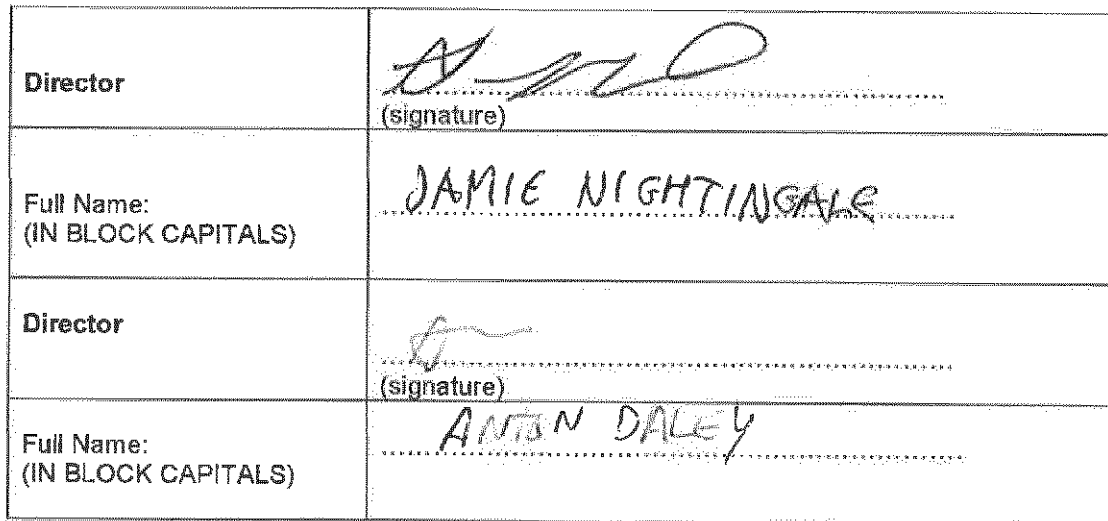 Director
(signature)
Full Name:
(IN BLOCK CAPITALS)
JAMIE NIGHTINGALE
Director
(signature)
Full Name:
(IN BLOCK CAPITALS)
DALEY